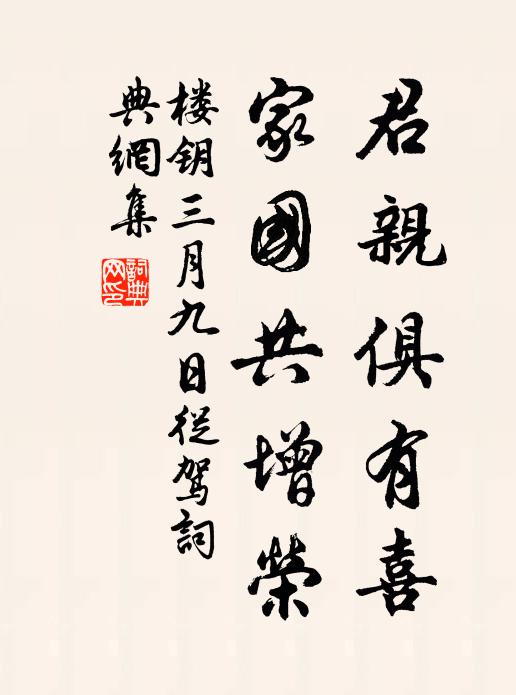 君親俱有喜
家國共增榮
楼钥三月九日從駕詞
典網集
詞典網印